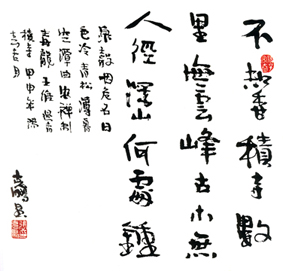 不知香積寺數
里雲峰古木無
人徑深山何處鐘
泉聲咽危石日
色冷青松薄暮
空潭曲安禪制
毒龍王維過香
積寺甲申年